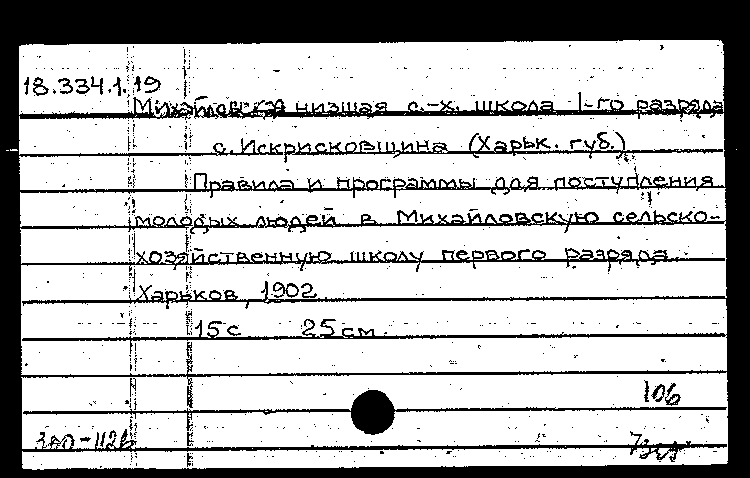 18.334.1.19
Михайловская низшая с.-х. школа 1-го разряда
с. Искрисковщина (Харьк. губ.)
Правила и программы для поступления
молодых людей в Михайловскую сельско-
хозяйственную школу первого разряда.
Харьков, 1902
15 с 25 см.
106